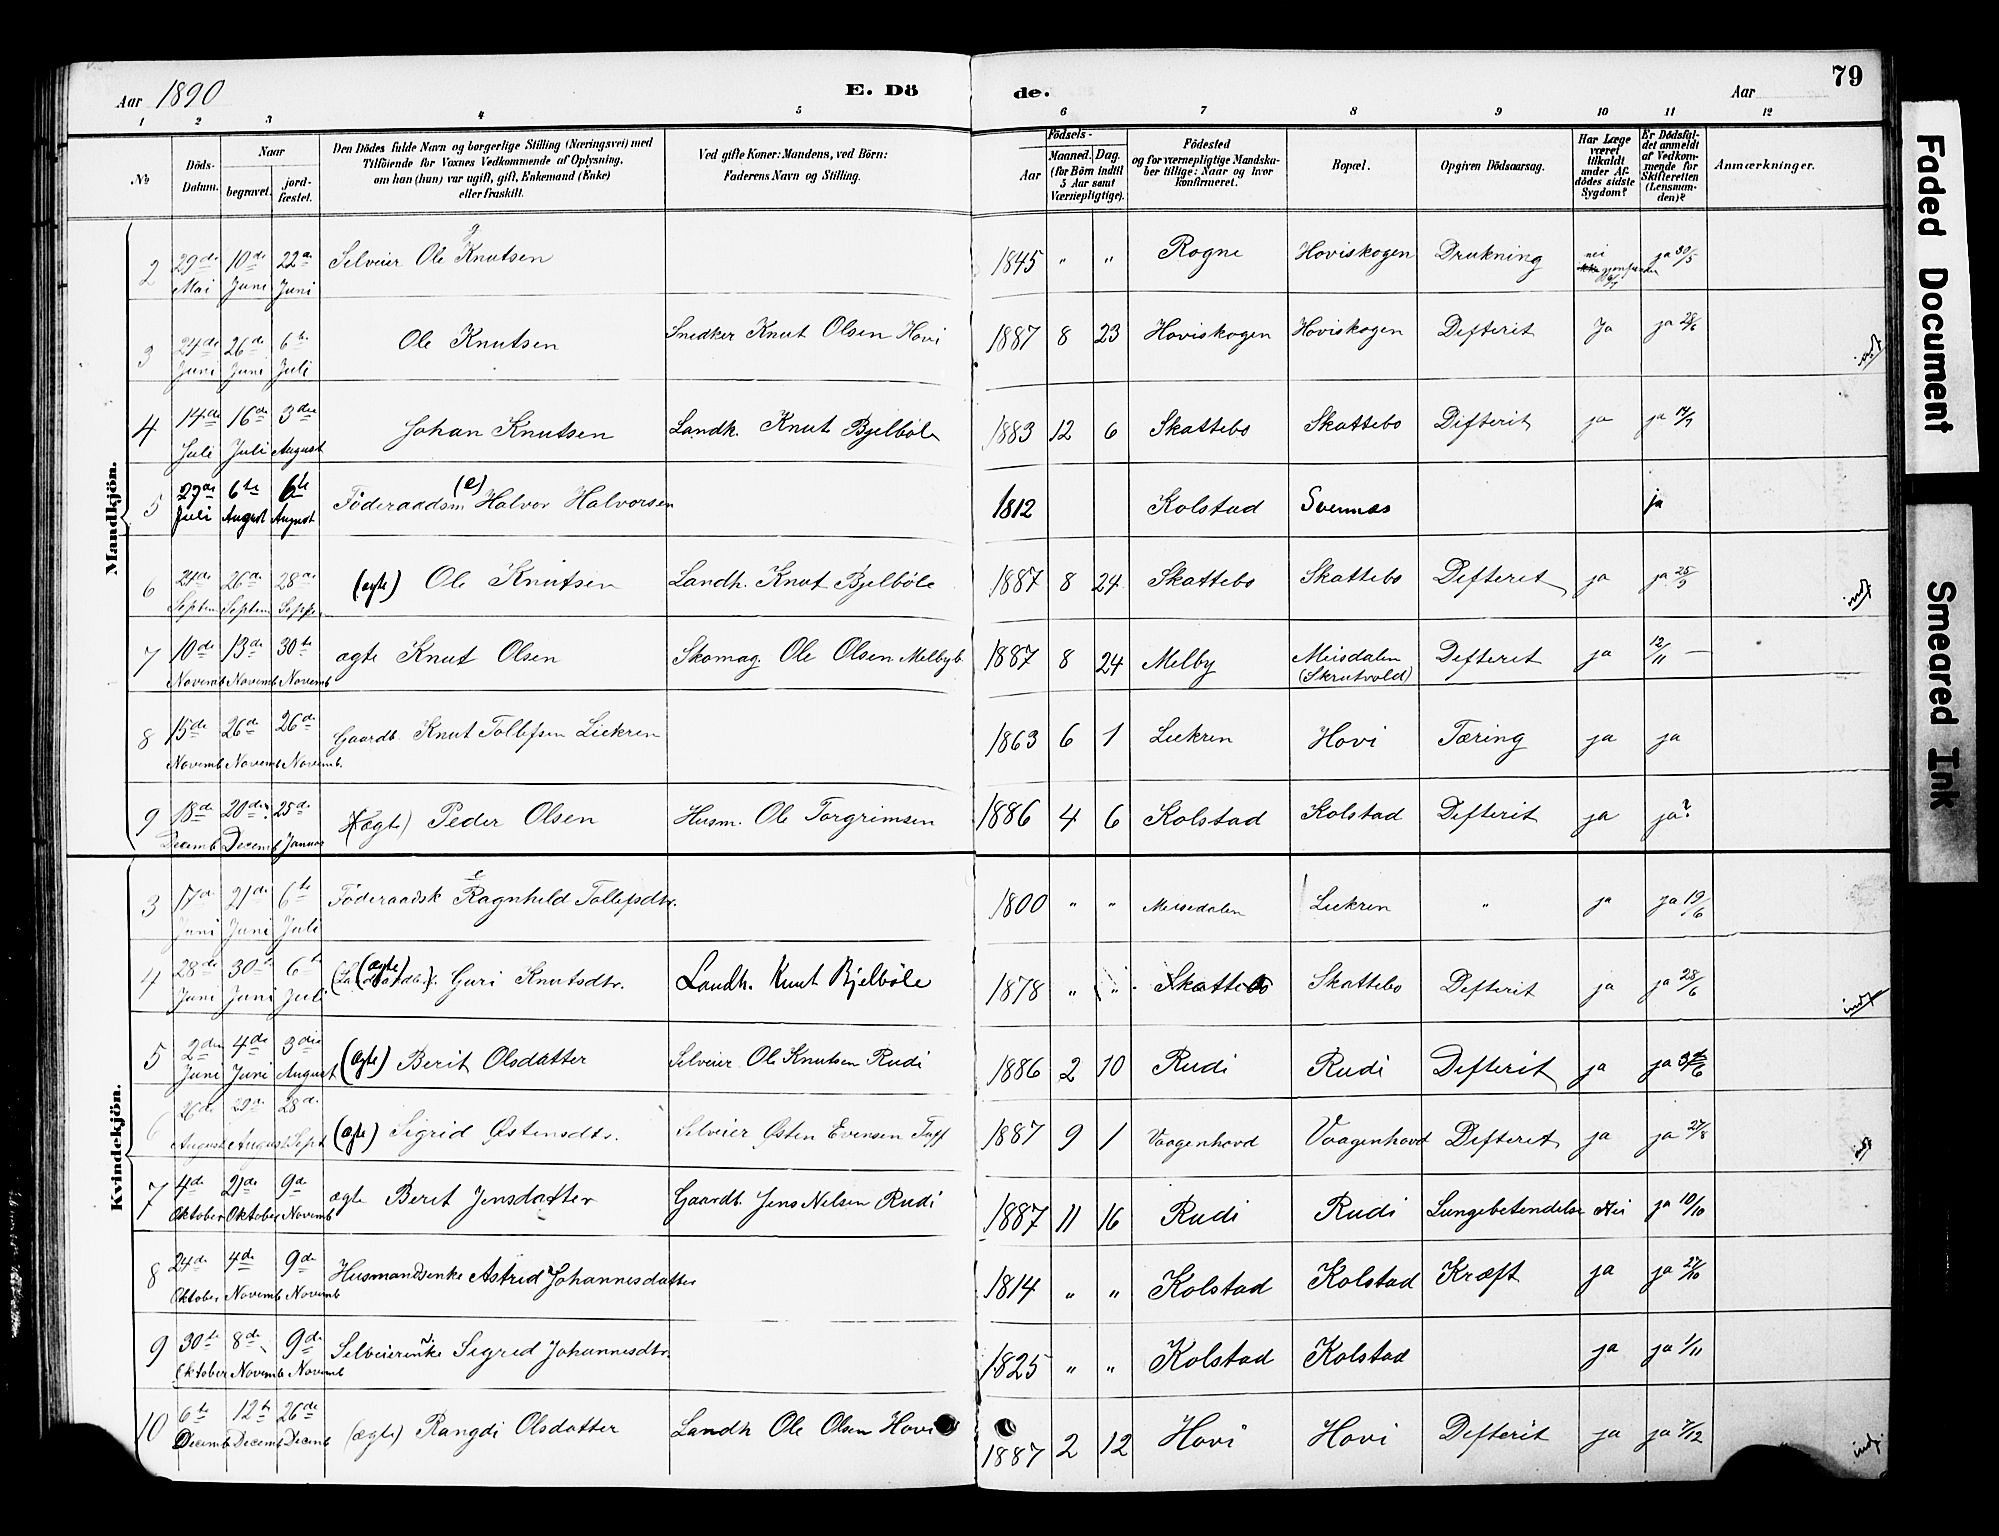 Aar 1890 E. Dö de. Aar 79
1 2 3 4 5 6 7 8 9 10 11 12
№ Döds-Datum. Naar begravet. jord-fæstet. Den Dödes fulde Navn og borgerlige Stilling (Næringsvei) med Tilföiende for Voxnes Vedkommende af Oplysning, om han (hun) var ugift, gift, Enkemand (Enke) eller fraskilt. Ved gifte Koner: Mandens, ved Börn: Faderens Navn og Stilling. Födsels- Aar Maaned. Dag. (for Börn indtil 5 Aar samt Værnepligtige). Födested og for værnepligtige Mandskaber tillige: Naar og hvor konfirmeret. Bopæl. Opgiven Dödsaarsag. Har Læge været tilkaldt under Afdödes sidste Sygdom? Er Dödsfaldet anmeldt af Vedkommende for Skifteretten (Lensmanden)? Anmærkninger.
Mandkjön.
2 29de Mai 10de Juni 22de Juni Selveier Ole Knutsen 1845 " " Rogne Hoviskogen Drukning nei ja 30/5
3 24de Juni 26de Juni 6te Juli Ole Knutsen Snedker Knut Olsen Hovi 1887 8 23 Hoviskogen Hoviskogen Defterit Ja ja 25/6 indf
4 14de Juli 16de Juli 3die August Johan Knutsen Landh. Knut Bjelböle 1883 12 6 Skattebo Skattebo Difterit ja ja 14/7
5 29de Juli 6te August 6te August Föderaadsm (e) Halvor Halvorsen 1812 Kolstad Svennæs ja
6 24de Septem 26de Septem 28de Septr. (ægte) Ole Knutsen Landh. Knut Bjelböle 1887 8 24 Skattebo Skattebo Defterit ja ja 25/9 indf
7 10de Novemb 13de Novemb 30te Novemb ægte Knut Olsen Skomag. Ole Olsen Melbyb. 1887 8 24 Melby Meisdalen (Skrutvold) Defterit ja 12/11 —
8 15de Novemb 26de Novemb 26de Novemb. Gaardb. Knut Tollefsen Liekren 1863 6 1 Liekren Hovi Tæring ja ja
9 18de Decemb 20de Decemb 25de Januar (ægte) Peder Olsen Husm. Ole Torgrimsen 1886 4 6 Kolstad Kolstad Defterit ja ja?
Kvindekjön.
3 17de Juni 21de Juni 6te Juli Föderaadsk e Ragnhild Tollefsdtr. 1800 " " Meisedalen Liekren " ja ja 19/6
4 28de Juni 30te Juni 6te Juli (ægte) Guri Knutsdtr. Landh. Knut Bjelböle 1878 " " Skattebo Skattebo Defterit ja ja 28/6 indf
5 2den Juni 4de Juni 3die August (ægte) Berit Olsdatter Selveier Ole Knutsen Rudi 1886 2 10 Rudi Rudi Defterit ja ja
6 26de August 29de August 28de Sept (ægte) Sigrid Østensdtr. Selveier Østen Evensen 1887 9 1 Vaagenhovd Vaagenhovd Defterit ja ja 27/8 indf
7 4de Oktober 21de Oktober 9de Novemb ægte Berit Jensdatter Gaardb. Jens Nelsen Rudi 1887 11 16 Rudi Rudi Lungebetendelse Nei ja 19/10
8 24de Oktober 4de Novemb 9de Novemb Husmandsenke Astrid Johannesdatter 1814 " " Kolstad Kolstad Kræft ja ja 27/10
9 30te Oktober 8de Novemb 9de Novemb Selveierenke Sigrid Johannesdtr. 1825 " " Kolstad Kolstad ja ja 1/11
10 6te Decemb 12te Decemb 26de Decemb (ægte) Rangdi Olsdatter Landh Ole Olsen Hovi 1887 2 12 Hovi Hovi Defterit ja ja 7/12 indf.
Faded Document
Smeared Ink